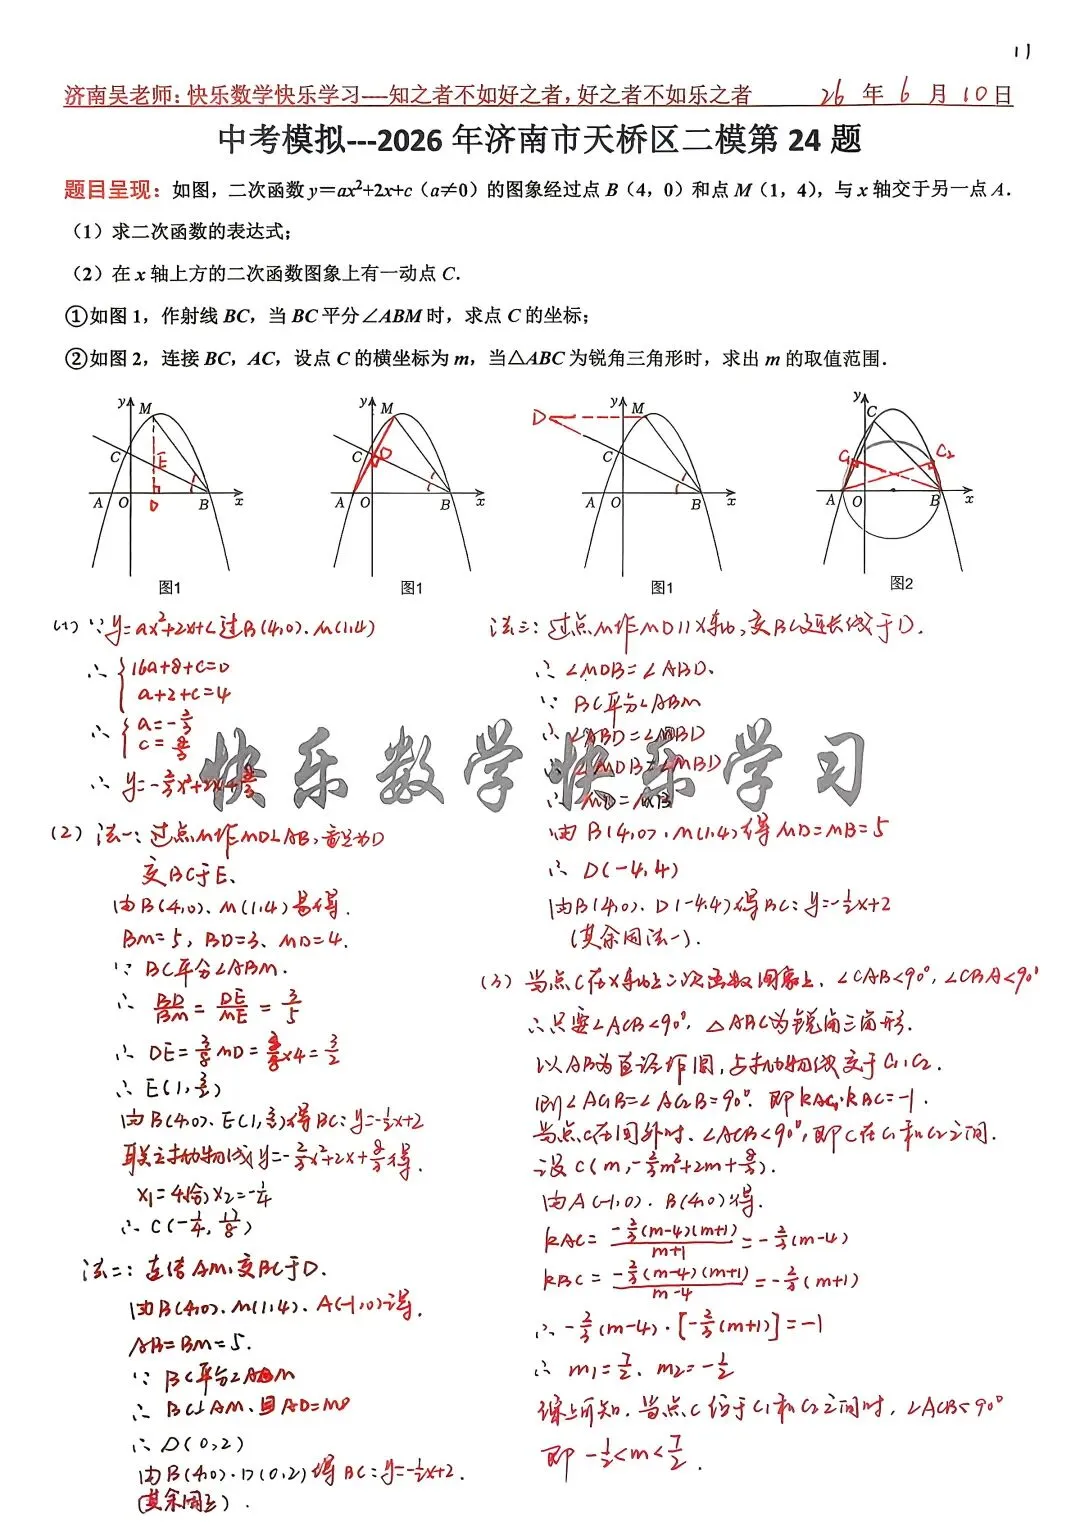 11
济南吴老师：快乐数学快乐学习----知之者不如好之者，好之者不如乐之者 26 年 6 月 10 日
中考模拟---2026 年济南市天桥区二模第 24 题
题目呈现：如图，二次函数 y＝ax²+2x+c（a≠0）的图象经过点 B（4，0）和点 M（1，4），与 x 轴交于另一点 A．
（1）求二次函数的表达式；
（2）在 x 轴上方的二次函数图象上有一动点 C．
①如图 1，作射线 BC，当 BC 平分∠ABM 时，求点 C 的坐标；
②如图 2，连接 BC，AC，设点 C 的横坐标为 m，当△ABC 为锐角三角形时，求出 m 的取值范围．
y M C E A O D B x 图1
y M C D A O B x 图1
D y M C A O B x 图1
y C C₁ C₂ A O B x 图2
快乐数学快乐学习
(1) ∵ y=ax²+2x+c过B(4,0)、M(1,4)
∴ {16a+8+c=0
a+2+c=4
∴ {a=-2/3
c=8/3
∴ y=-2/3x²+2x+8/3
(2) 法一：过点M作MD⊥AB，垂足为D
交BC于E、
由B(4,0)、M(1,4)易得．
BM=5，BD=3、MD=4．
∵ BC平分∠ABM．
∴ BD/BM=DE/ME=3/5
∴ DE=3/8MD=3/8×4=3/2
∴ E(1,3/2)
由B(4,0)、E(1,3/2)得BC：y=-1/2x+2
联立抛物线y=-2/3x²+2x+8/3得．
x₁=4(舍) x₂=-1/4
∴ C(-1/4, 17/8)
法二：连接AM，交BC于D．
由B(4,0)、M(1,4)、A(-1,0)得．
AB=BM=5．
∵ BC平分∠ABM
∴ BC⊥AM、且AD=MD
∴ D(0,2)
由B(4,0)、D(0,2)得BC：y=-1/2x+2．
(其余同上)．
法三：过点M作MD∥x轴，交BC延长线于D．
∴ ∠MDB=∠ABD、
∵ BC平分∠ABM
∴ ∠ABD=∠MBD
∴ ∠MDB=∠MBD
∴ MD=MB
由B(4,0)，M(1,4)得MD=MB=5
∴ D(-4,4)
由B(4,0)、D(-4,4)得BC：y=-1/2x+2
(其余同法一)．
(3) 当点C在x轴上二次函数图象上，∠CAB<90°，∠CBA<90°
∴只要∠ACB<90°，△ABC为锐角三角形．
以AB为直径作圆，与抛物线交于C₁，C₂．
则∠AC₁B=∠AC₂B=90°．即kAC·kBC=-1．
当点C在圆外时，∠ACB<90°，即C在C₁和C₂之间．
设C(m,-2/3m²+2m+8/3)．
由A(-1,0)、B(4,0)得．
kAC=-2/3(m-4)(m+1)/m+1=-2/3(m-4)
kBC=-2/3(m-4)(m+1)/m-4=-2/3(m+1)
∴ -2/3(m-4)·[-2/3(m+1)]=-1
∴ m₁=7/2、m₂=-1/2
综上所知，当点C位于C₁和C₂之间时，∠ACB<90°
即 -1/2<m<7/2．